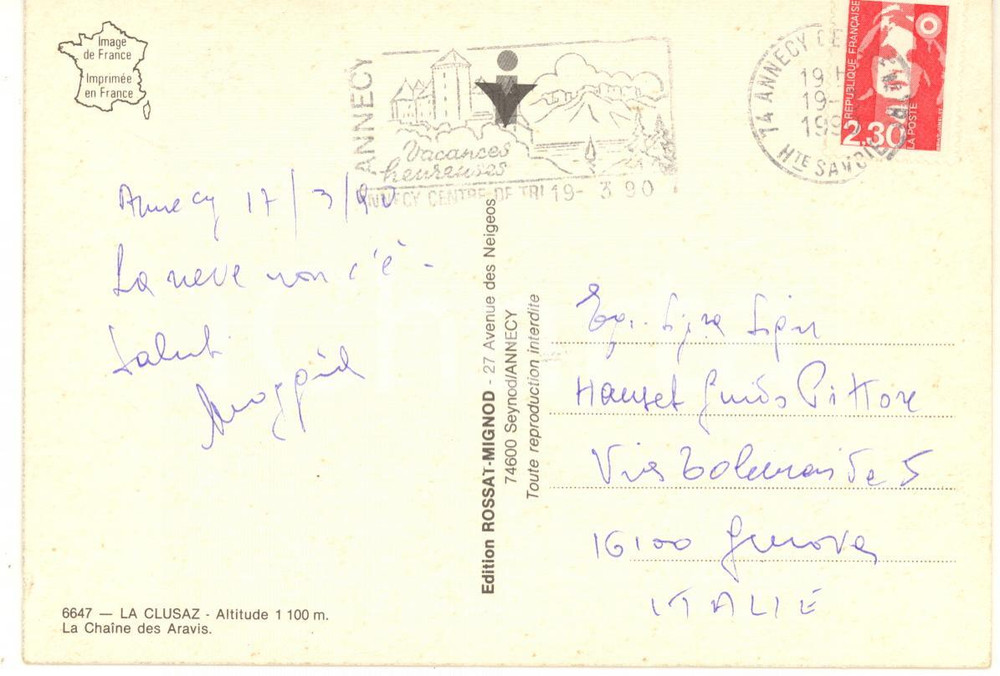 Image
de France
Imprimée
en France
ANNECY
Vacances
heureuses
ANNECY CENTRE DE TRI 19 - 3 90
74 ANNECY CE
19 H
19-
199
HTE SAVOIE
RÉPUBLIQUE FRANÇAISE
2,30
LA POSTE
Annecy 17/3/90
La neve non c'è -
Saluti
Edition ROSSAT-MIGNOD - 27 Avenue des Neigeos
74600 Seynod/ANNECY
Toute reproduction interdite
Egr. Sig.ra Sig.r
Guido Pittore
Via Tolemaide 5
16100 Genova
ITALIE
6647 — LA CLUSAZ - Altitude 1 100 m.
La Chaîne des Aravis.